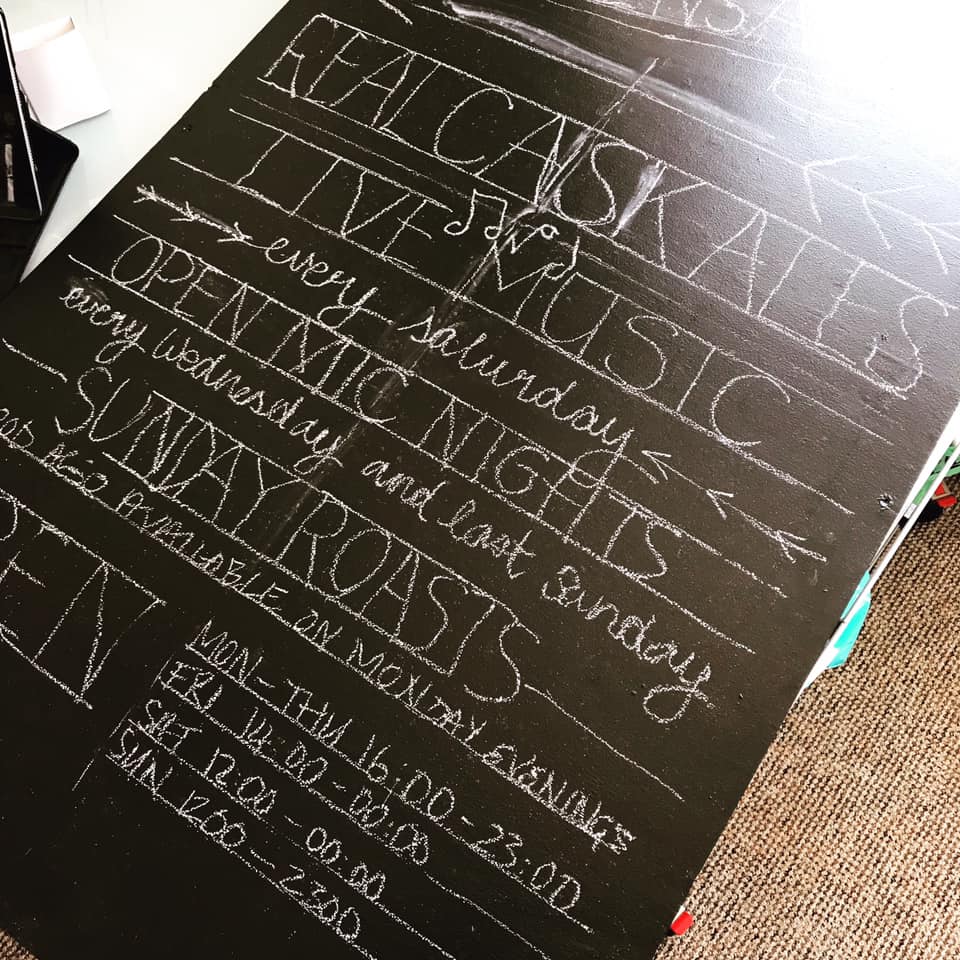 REAL CASK ALES
LIVE MUSIC
every saturday
OPEN MIC NIGHTS
every Wednesday and last Sunday
SUNDAY ROASTS
AVAILABLE ON MONDAY EVENINGS
EN
MON-THU 16:00-23:00
FRI 12:00-00:00
SAT 12:00-00:00
SUN 1200-2300